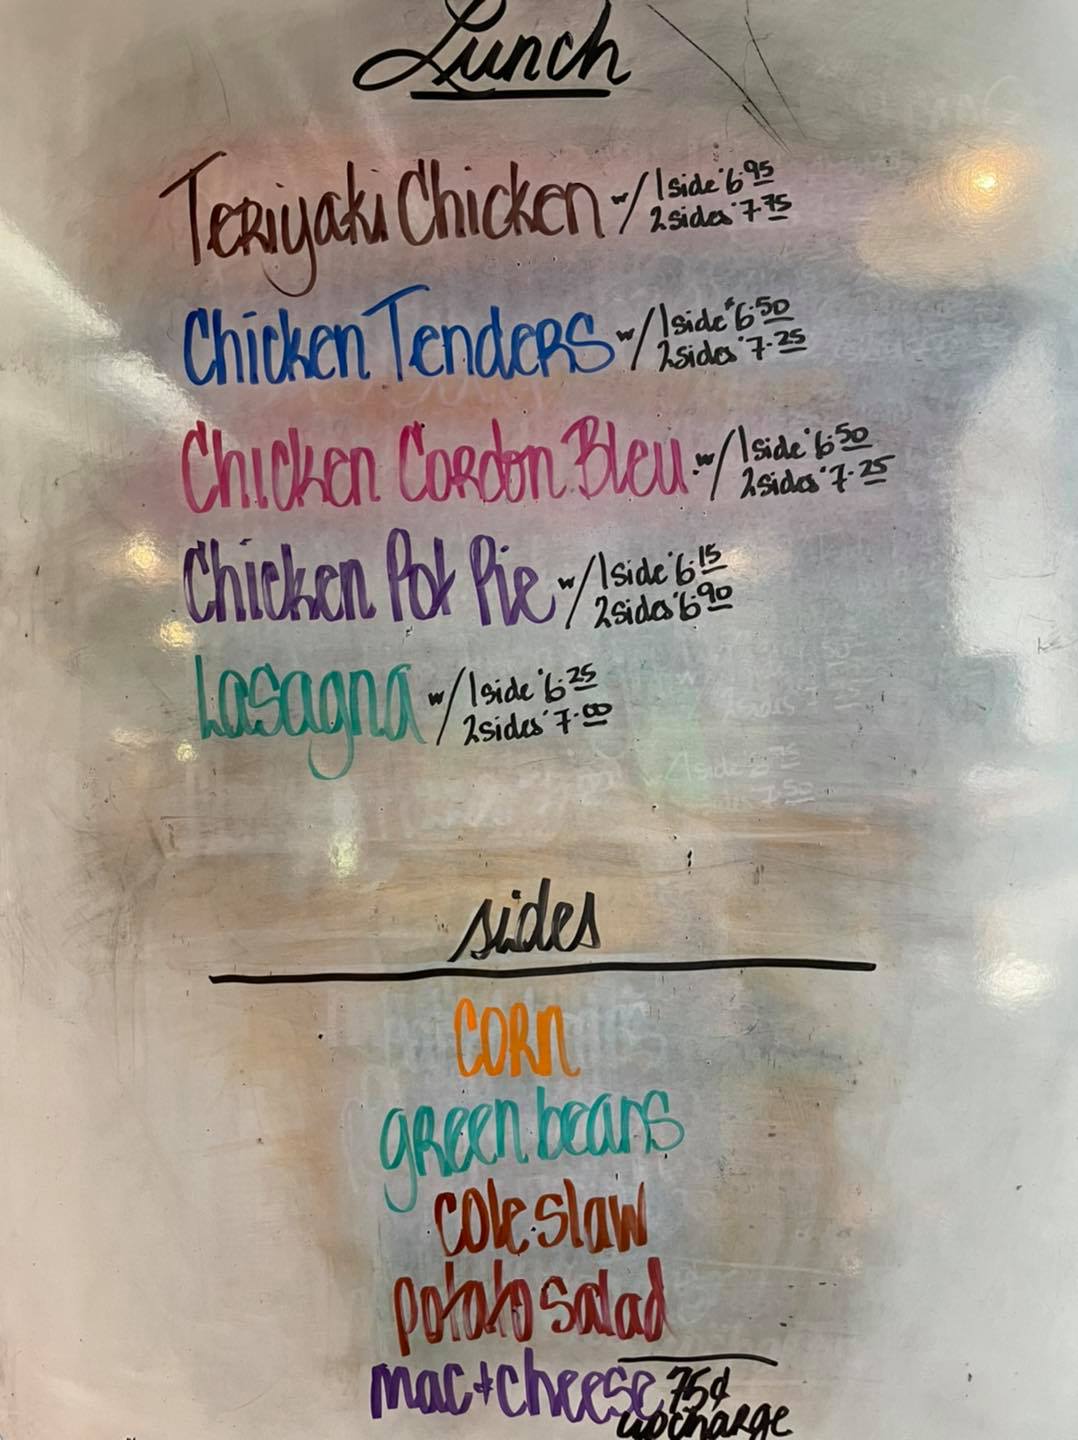 Lunch
Teriyaki Chicken w/ 1 side $6.95
2 sides $7.75
Chicken Tenders w/ 1 side $6.50
2 sides $7.25
Chicken Cordon Bleu w/ 1 side $6.50
2 sides $7.25
Chicken Pot Pie w/ 1 side $6.15
2 sides $6.90
Lasagna w/ 1 side $6.25
2 sides $7.00
sides
corn
green beans
cole slaw
potato salad
mac + cheese 75¢
upcharge